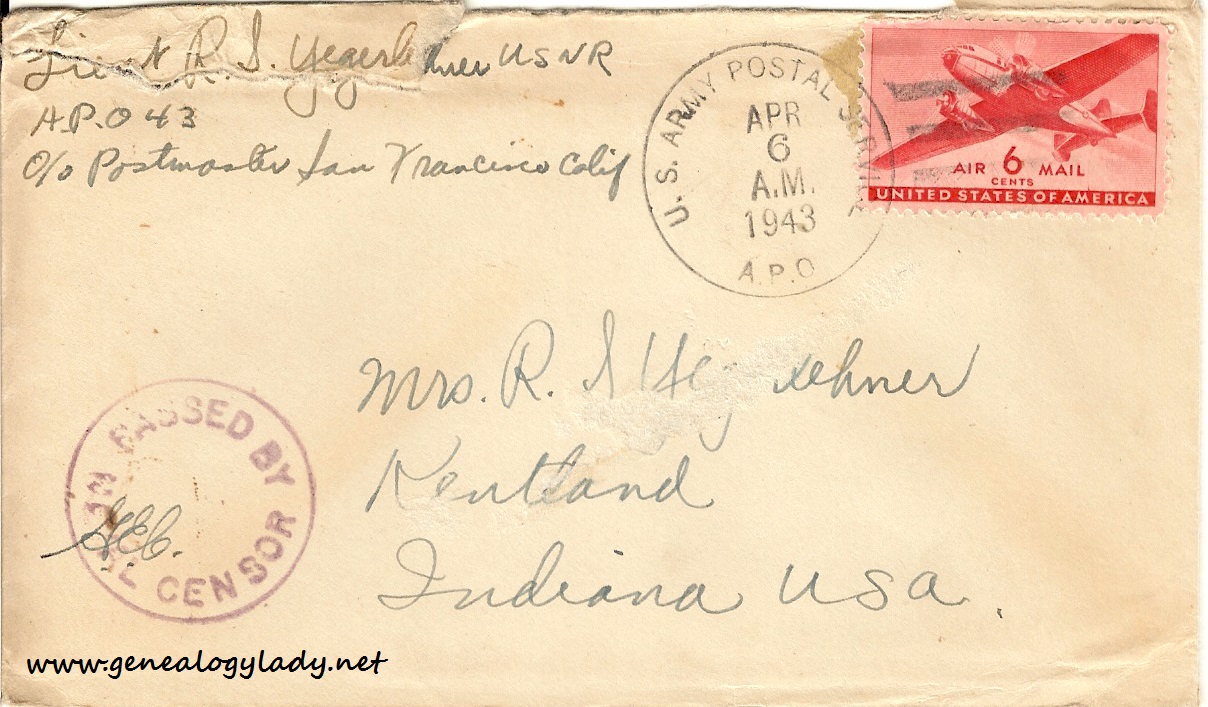 Lieut R. S. Yegerlehner USNR
A.P.O 43
c/o Postmaster San Francisco Calif
U.S. ARMY POSTAL SERVICE
APR
6
A.M.
1943
A.P.O.
AIR 6 MAIL
CENTS
UNITED STATES OF AMERICA
Mrs. R. S Yeg lehner
Kentland
Indiana USA.
PASSED BY
NAVAL CENSOR
GEC.
www.genealogylady.net